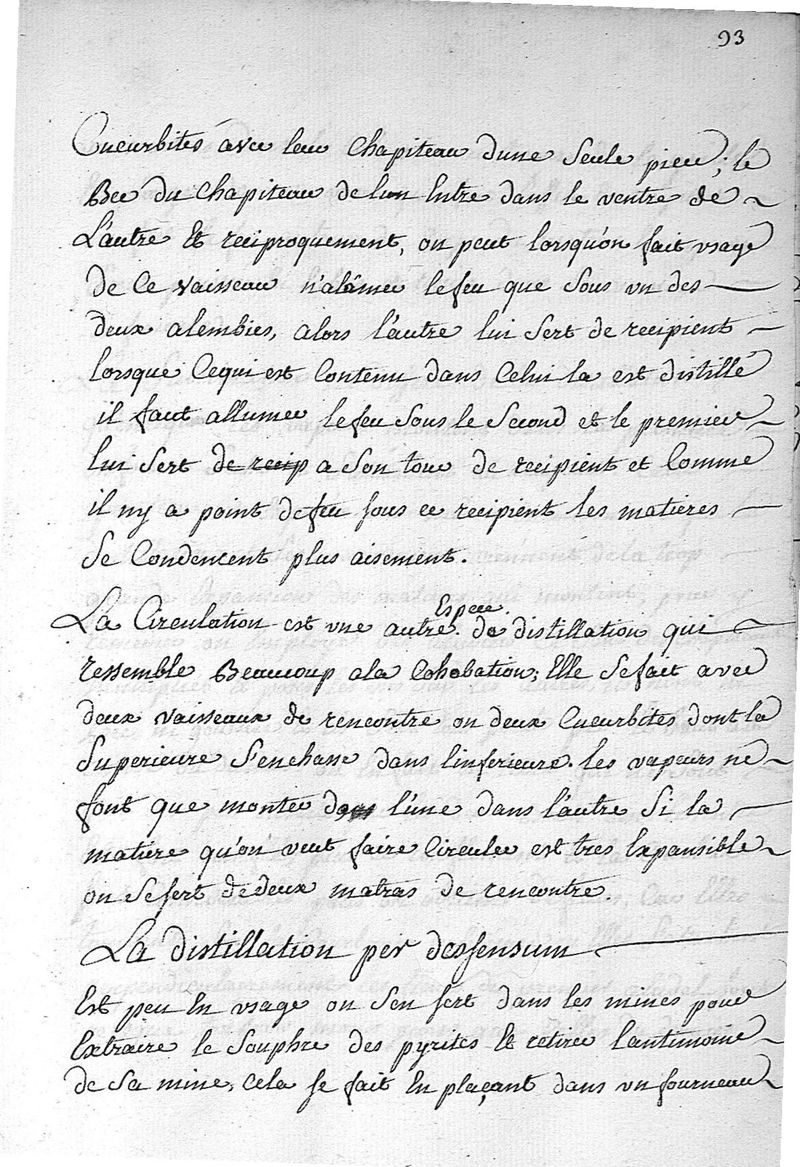 93
Cucurbites avec leur chapiteau dune seule piece; le
Bec du chapiteau de lun Entre dans le ventre de
L'autre Et reciproquement, on peut lorsqu'on fait usage
de Ce vaisseau n'alûmer le feu que sous un des
deux alembics, alors l'autre lui sert de recipient
lorsque Cequi est Contenu dans Celui la est distillé
il faut allumer le feu sous le second et le premier
lui sert de recip a son tour de recipient et Comme
il ny a point de feu sous ce recipient les matieres
se Condencent plus aisement.
Espece.
La Circulation est une autre de distillation qui
ressemble Beaucoup ala Cohobation; Elle se fait avec
deux vaisseaux de rencontre ou deux Cucurbites dont la
superieure s'enchasse dans linferieure. les vapeurs ne
font que monter dans l'une dans l'autre si la
matiere qu'on veut faire Circuler est tres Expansible
on se sert de deux matras de rencontre.
La distillation per dessensum
Est peu En usage on s'en sert dans les mines pour
Extraire le souphre des pyrites Et retirer lantimoine
de sa mine, cela se fait En plaçant dans un fourneau